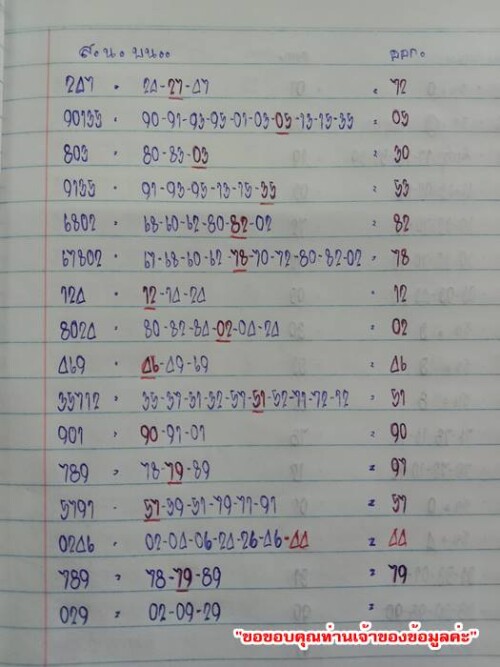 ส.น. บนอ. ออก.
247 . 24-27-47 = 72
90135 . 90-91-93-95-01-03-05-13-15-35 = 05
803 . 80-83-03 = 30
9135 = 91-93-95-13-15-35 = 53
6802 = 68-60-62-80-82-02 = 82
67802 . 67-68-60-62-78-70-72-80-82-02 = 78
124 . 12-14-24 . 12
8024 . 80-82-84-02-04-24 = 02
469 . 46-49-69 = 46
35712 = 35-37-31-32-57-51-52-71-72-12 = 51
901 , 90-91-01 = 90
789 , 78-79-89 = 97
5791 - 57-59-51-79-71-91 = 57
0246 . 02-04-06-24-26-46-44 = 44
789 = 78-79-89 = 79
029 = 02-09-29 =
"ขอขอบคุณท่านเจ้าของข้อมูลค่ะ"